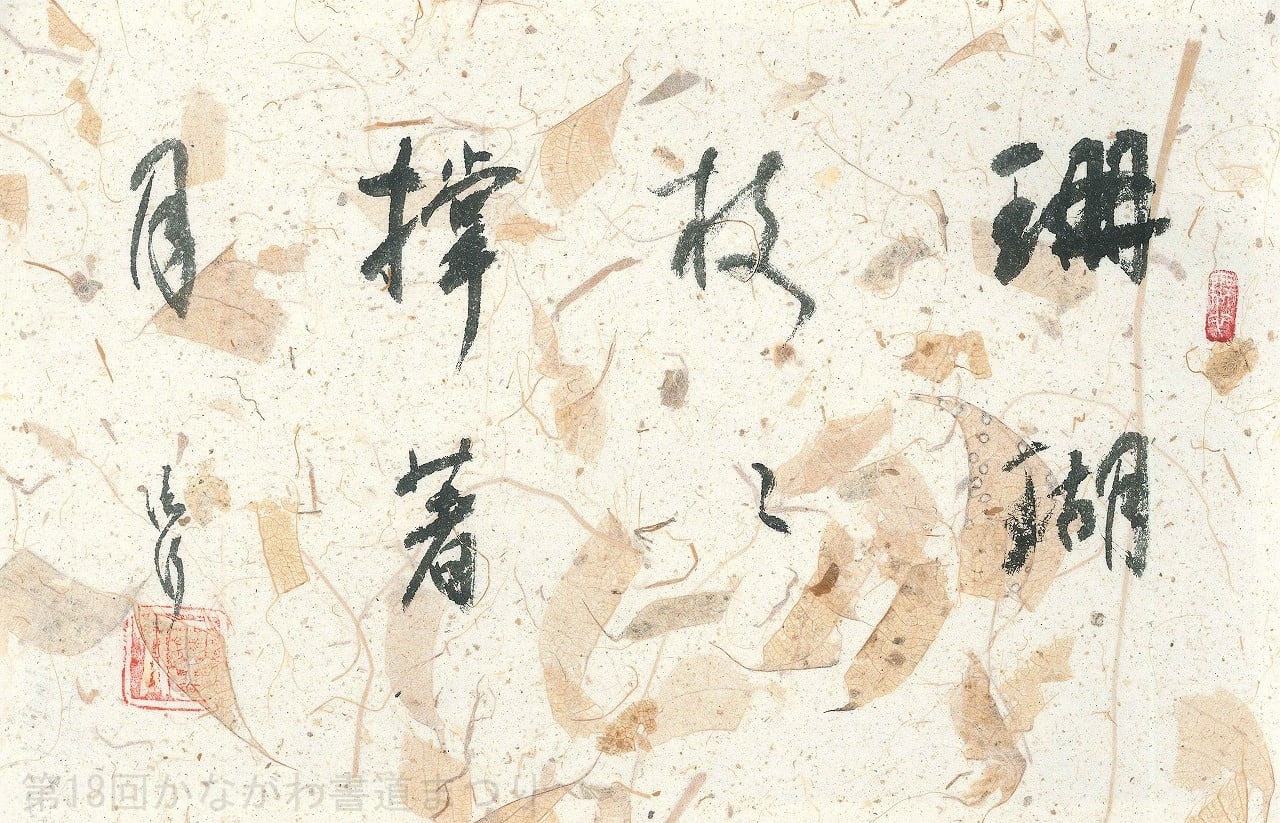 珊瑚
枝〻
撑著
月
第18回かながわ書道まつり